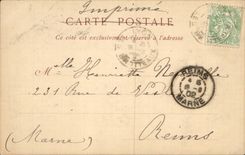 Imprimé
CARTE POSTALE
Ce côté est exclusivement réservé à l'adresse
Mlle Henriette
231 Rue de
(Marne) Reims
REIMS
MARNE